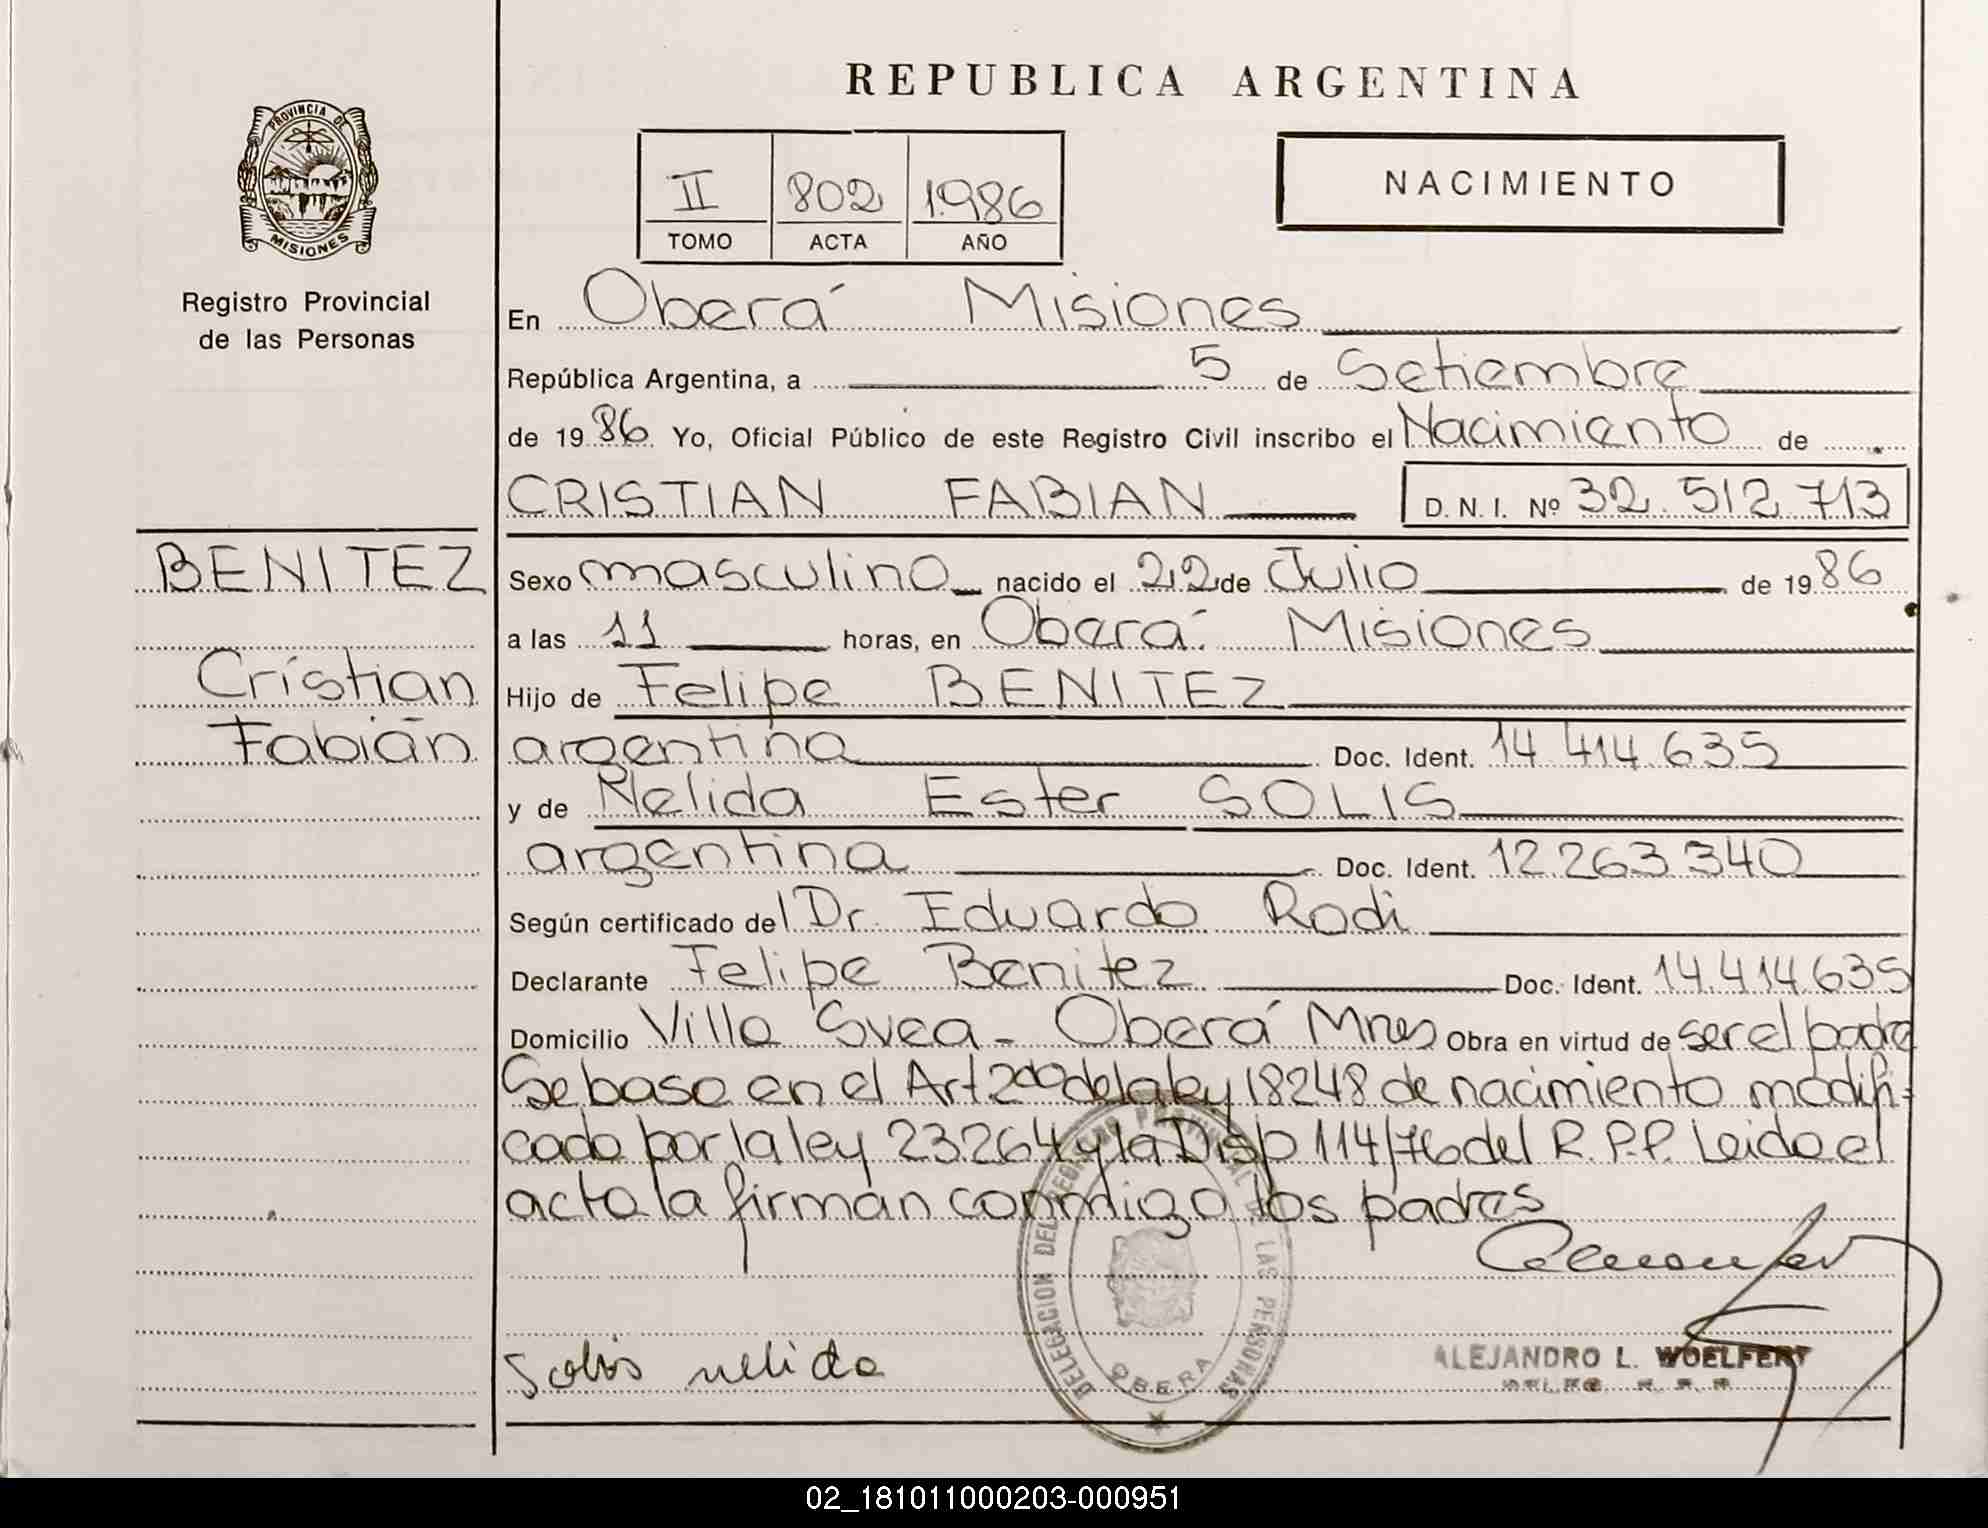 REPUBLICA ARGENTINA
PROVINCIA DE
MISIONES
Registro Provincial
de las Personas
II 802 1986
TOMO ACTA AÑO
NACIMIENTO
En Oberá Misiones
República Argentina, a 5 de Setiembre
de 1986 Yo, Oficial Público de este Registro Civil inscribo el Nacimiento de
CRISTIAN FABIAN D. N. I. Nº 32.512.713
BENITEZ
Cristian
Fabián
Sexo masculino nacido el 22 de Julio de 1986
a las 11 horas, en Oberá Misiones
Hijo de Felipe BENITEZ
argentina Doc. Ident. 14.414.635
y de Nelida Ester SOLIS
argentina Doc. Ident. 12.263.340
Según certificado del Dr. Eduardo Rodi
Declarante Felipe Benitez Doc. Ident. 14.414.635
Domicilio Villa Svea - Oberá Mnes Obra en virtud de ser el padre
Se basa en el Art 2do de la ley 18248 de nacimiento modifi-
cado por la ley 23.264 y la Disp 114/76 del R.P.P. Leida el
acta la firman conmigo los padres
DELEGACION DEL REGISTRO PROVINCIAL DE LAS PERSONAS
OBERA
Solis nelida
ALEJANDRO L. WOELFERT
02_181011000203-000951